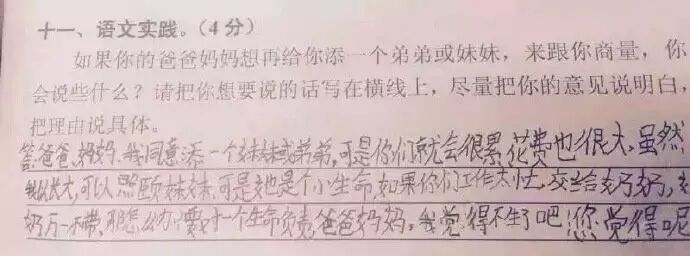 十一、语文实践。(4分)
如果你的爸爸妈妈想再给你添一个弟弟或妹妹，来跟你商量，你
会说些什么？请把你想要说的话写在横线上，尽量把你的意见说明白，
把理由说具体。
答：爸爸、妈妈，我同意添一个妹妹或弟弟，可是你们就会很累，花费也很大，虽然
我长大，可以照顾妹妹，可是她是个小生命，如果你们工作太忙，交给奶奶，
奶万一不带，那怎么办，要对一个生命负责，爸爸妈妈，我觉得不生了吧，您觉得呢